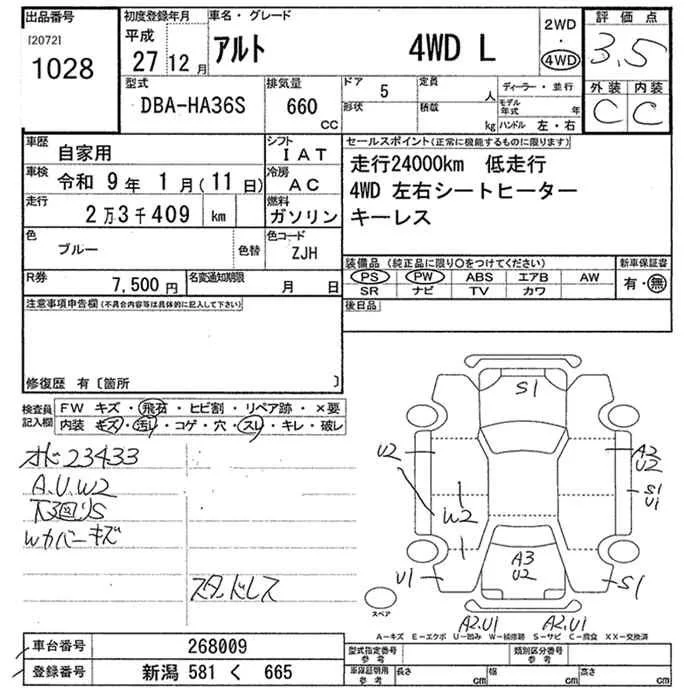 出品番号
[2072]
1028
初度登録年月
平成
27 12 月
車名・グレード
アルト 4WD L
2WD
・
4WD
評価点
3.5
外装 内装
C C
型式
DBA-HA36S
排気量
660
CC
ドア 5
形状
定員
人
積載
kg
ディーラー・並行
モデル年式 年
ハンドル 左・右
車歴
自家用
シフト
IAT
車検
令和 9年 1月(11日)
冷房
AC
走行
2万3千409 km
燃料
ガソリン
色
ブルー
色替
色コード
ZJH
R券
7,500円
名変通知期限
月 日
セールスポイント(正常に機能するものに限ります)
走行24000km 低走行
4WD 左右シートヒーター
キーレス
装備品(純正品に限り○をつけてください)
PS PW ABS エアB AW
SR ナビ TV カワ
新車保証書
有・無
後日品
注意事項申告欄(不具合内容等は具体的に記入して下さい)
修復歴 有〔箇所 〕
検査員
記入欄
FW キズ・飛石・ヒビ割・リペア跡・×要
内装・キズ・汚レ・コゲ・穴・スレ・キレ・破レ
オド23433
A.U.W2
下回りS
Wカバーキズ
スタッドレス
S1
U2
A2
U2
S1
U1
W2
A3
U2
U1
S1
スペア
A2.U1 A2.U1
A−キズ E−エクボ U−凹み W−補修跡 S−サビ C−腐食 XX−交換済
車台番号
268009
登録番号
新潟 581 く 665
型式指定番号
参考
類別区分番号
参考
車庫証明用
参考
長さ cm
幅 cm
高さ cm